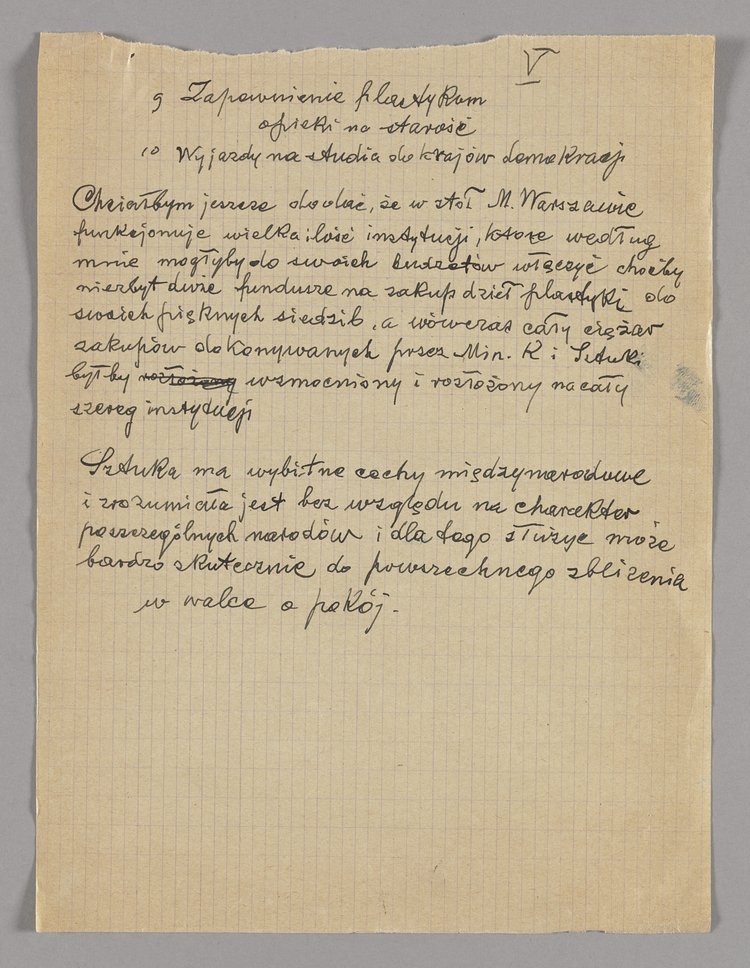 V
9 Zapewnienie plastykom
opieki na starość
10 Wyjazdy na studia do krajów demokracji
Chciałbym jeszcze dodać, że w stoł M. Warszawie
funkcjonuje wielka ilość instytucji, które według
mnie mogłyby do swoich budżetów włączyć choćby
niezbyt duże fundusze na zakup dzieł plastyki do
swoich pięknych siedzib, a wówczas cały ciężar
zakupów dokonywanych przez Min. K i Sztuki
byłby rozłożony wzmocniony i rozłożony na cały
szereg instytucji
Sztuka ma wybitne cechy międzynarodowe
i zrozumiała jest bez względu na charakter
poszczególnych narodów i dla tego służyć może
bardzo skutecznie do powszechnego zbliżenia
w walce o pokój.